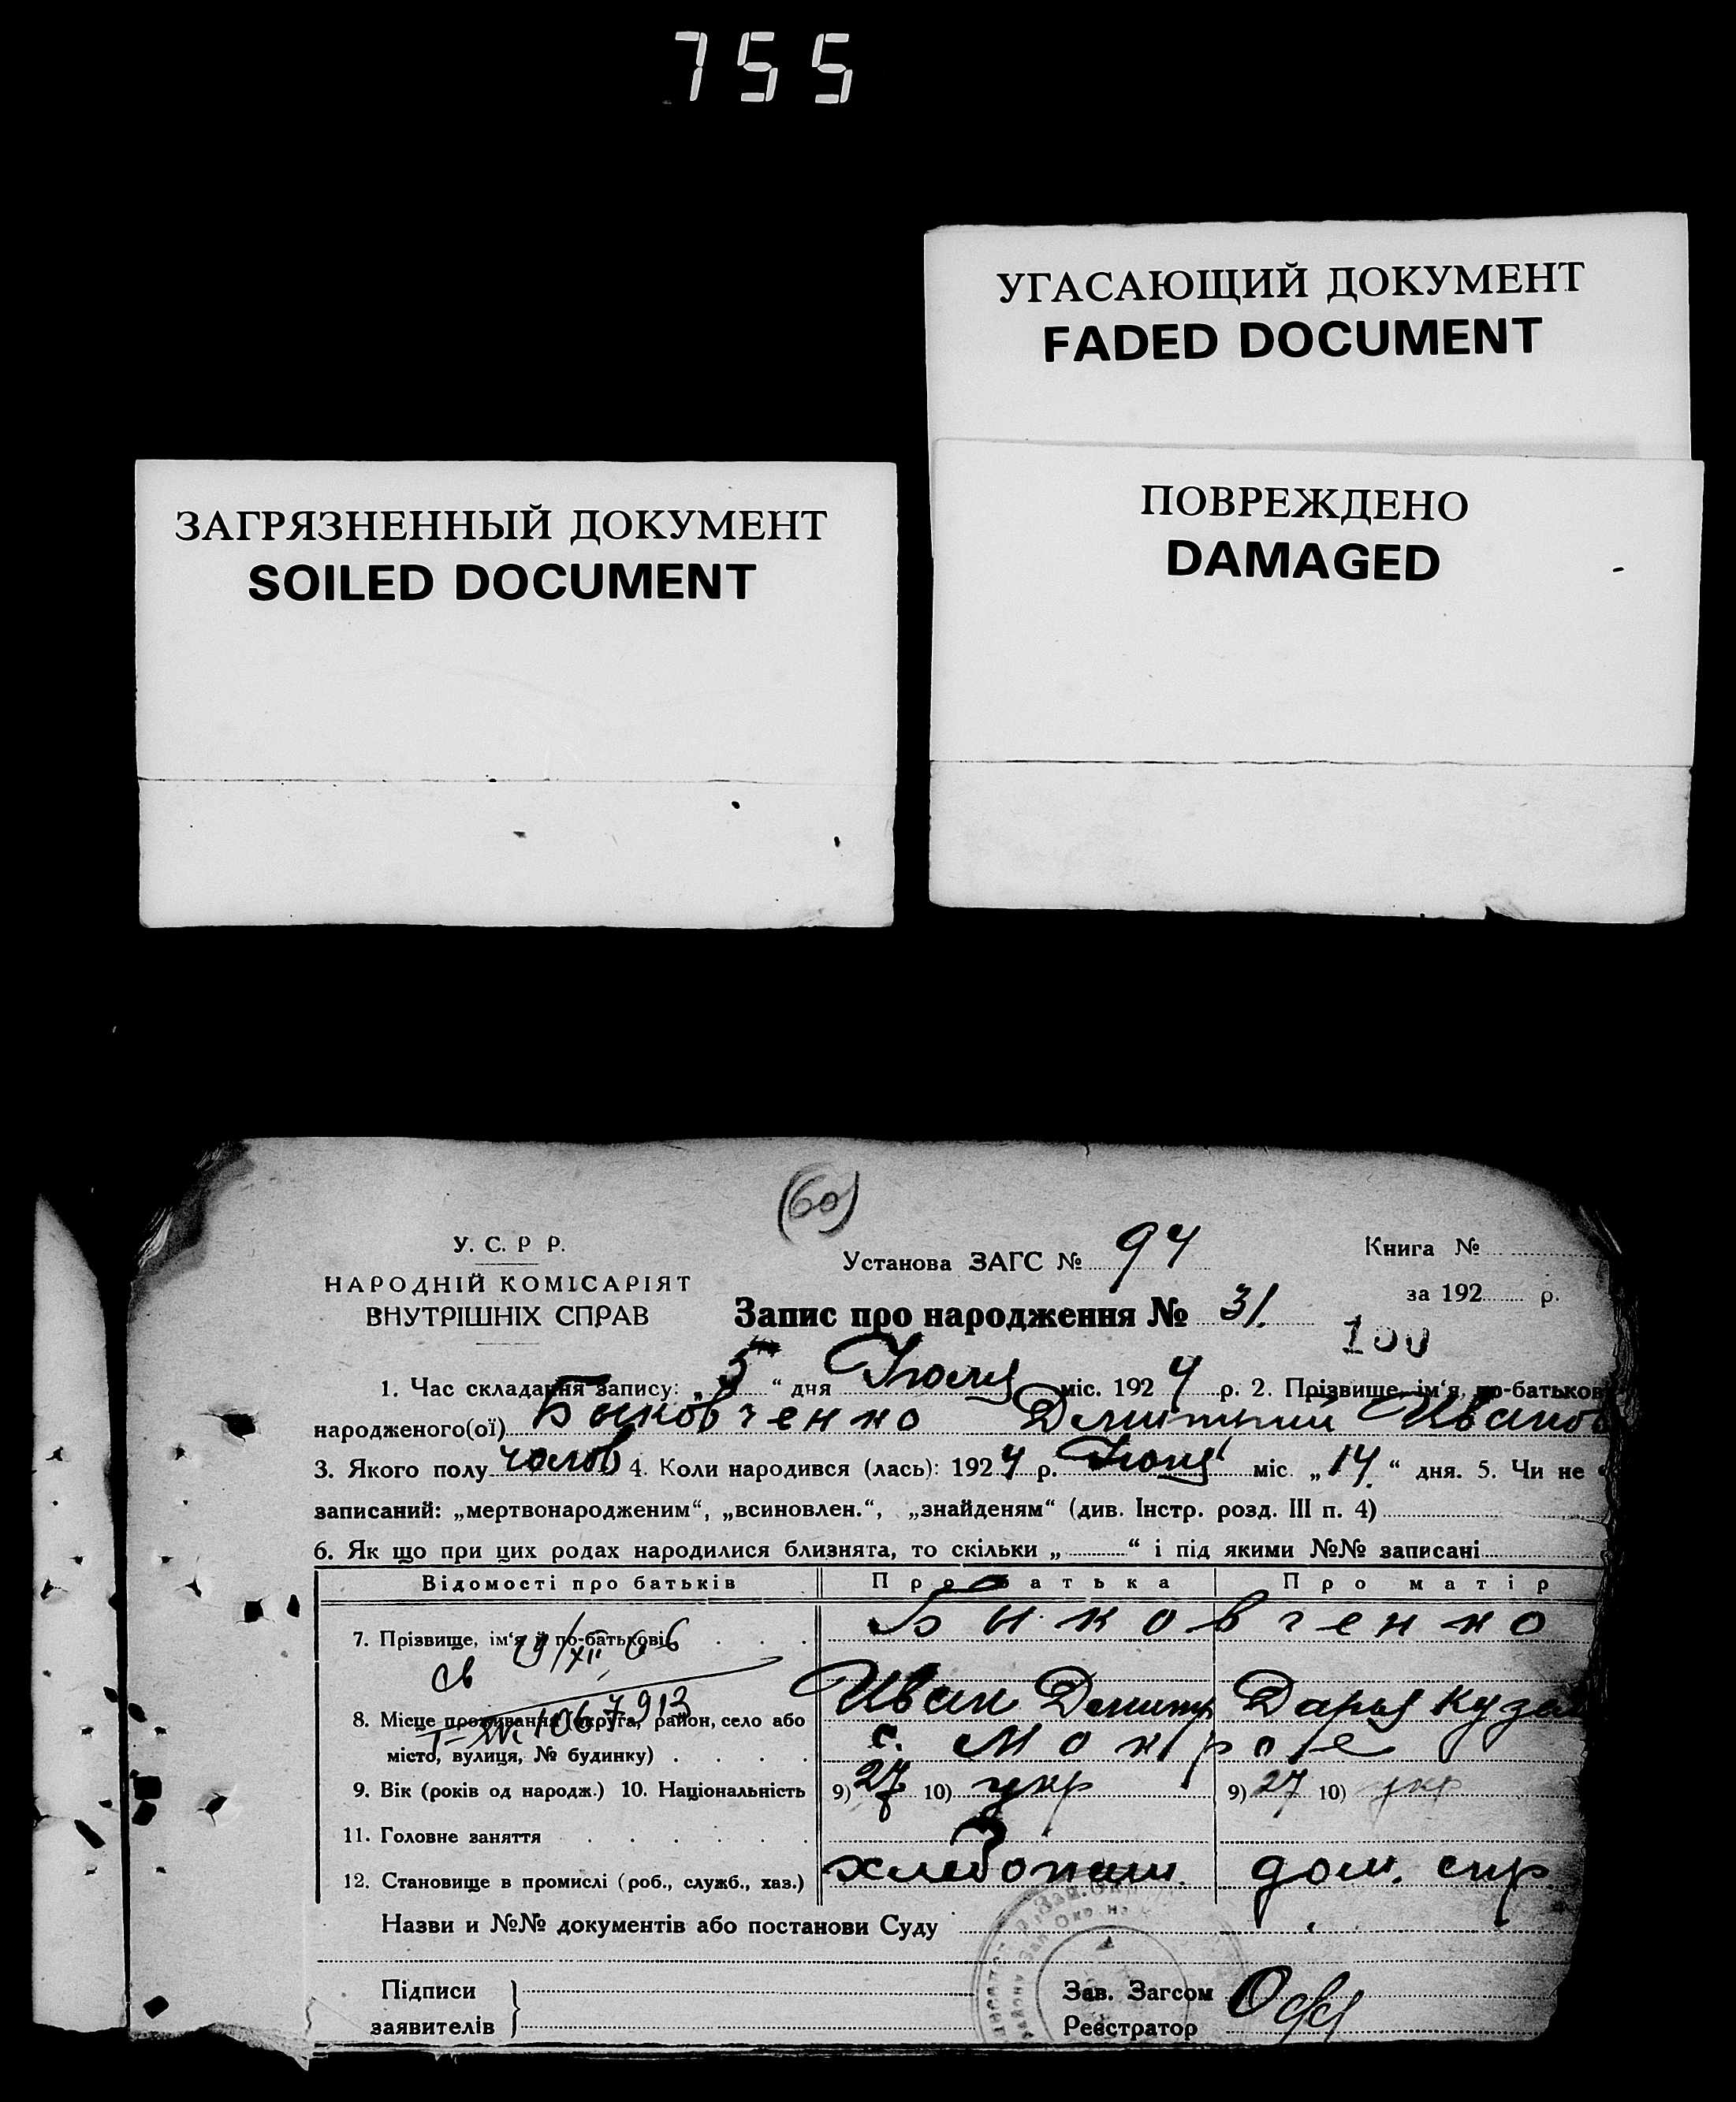 755
УГАСАЮЩИЙ ДОКУМЕНТ
FADED DOCUMENT
ЗАГРЯЗНЕННЫЙ ДОКУМЕНТ
SOILED DOCUMENT
ПОВРЕЖДЕНО
DAMAGED
(60)
У. С. Р Р.
НАРОДНІЙ КОМІСАРІЯТ
ВНУТРІШНІХ СПРАВ
Установа ЗАГС № 94
Книга №
за 192 р.
Запис про народження № 31.
100
1. Час складання запису: „5“ дня Июля міс. 1924 р. 2. Прізвище, ім‘я, по-батькові
народженого(ої) Быковченко Дмитрий Иванов
3. Якого полу чолов 4. Коли народився (лась): 1924 р. міс. „14“ дня. 5. Чи не
записаний: „мертвонародженим“, „всиновлен.“, „знайденям“ (див. Інстр. розд. III п. 4)
6. Як що при цих родах народилися близнята, то скільки „ “ і під якими №№ записані
Відомості про батьків Про батька Про матір
7. Прізвище, ім‘я й по-батькові Быковченко
св 19/XII 66
Иван Дмитр Дарья Кузь
8. Місце проживання (округа, район, село або
місто, вулиця, № будинку) с. Мокрое
9. Вік (років од народж.) 10. Національність 9) 27 10) укр 9) 27 10) укр
11. Головне заняття
12. Становище в промислі (роб., служб., хаз.) хлебопаш. дом. снр.
Назви и №№ документів або постанови Суду
Підписи
заявителів
Зав. Загсом
Реєстратор